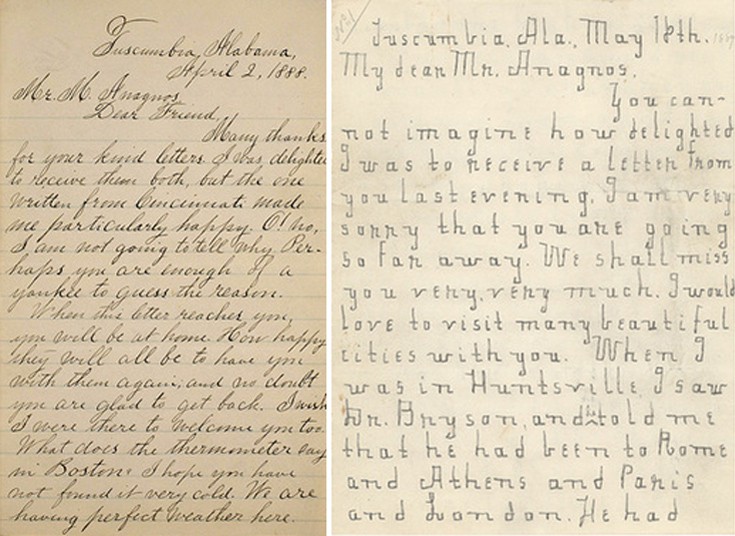 Tuscumbia, Alabama,
April 2, 1888.
Mr. M. Anagnos,
Dear Friend,
Many thanks
for your kind letters. I was delighted
to receive them both, but the one
written from Cincinnati made
me particularly happy. O! no,
I am not going to tell why. Per-
haps you are enough of a
yankee to guess the reason.
When this letter reaches you,
you will be at home. How happy
they will all be to have you
with them again; and no doubt
you are glad to get back. I wish
I were there to welcome you too.
What does the thermometer say
in Boston? I hope you have
not found it very cold. We are
having perfect weather here.
No 1
Tuscumbia, Ala., May 18th.
My dear Mr. Anagnos,
You can-
not imagine how delighted
I was to receive a letter from
you last evening. I am very
sorry that you are going
so far away. We shall miss
you very, very much. I would
love to visit many beautiful
cities with you. When I
was in Huntsville I saw
Dr. Bryson, and he told me
that he had been to Rome
and Athens and Paris
and London. He had